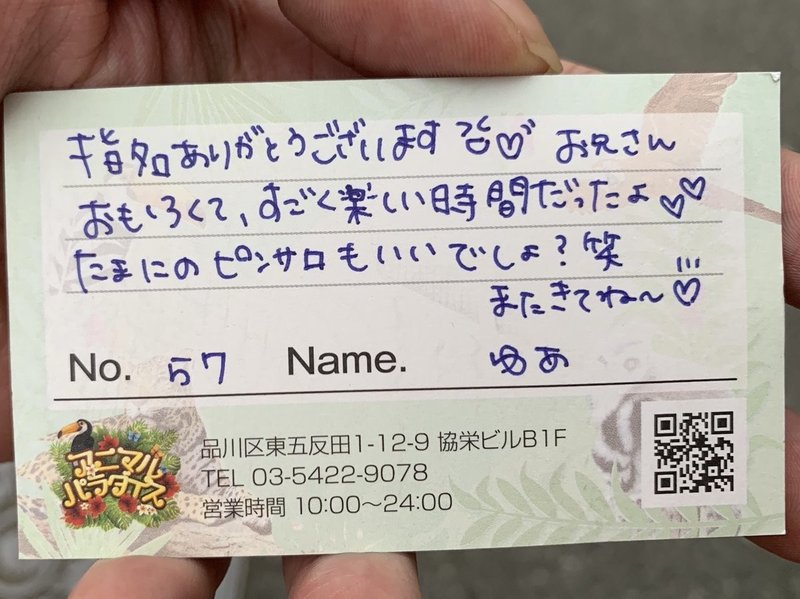 指名ありがとうございます♡ お兄さん
おもしろくて、すごく楽しい時間だったよ♡♡
たまにのピンサロもいいでしょ？笑
またきてね〜♡
No. 57 Name. ゆあ
アニマル
パラダイス
品川区東五反田1-12-9 協栄ビルB1F
TEL 03-5422-9078
営業時間 10:00〜24:00